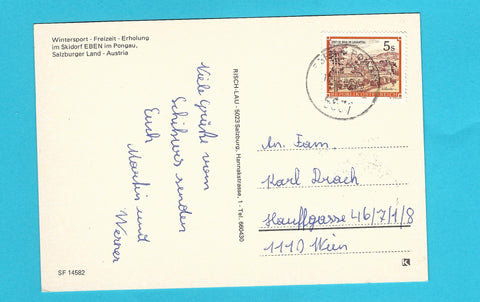 Wintersport - Freizeit - Erholung
im Skidorf EBEN im Pongau,
Salzburger Land - Austria
Viele Grüße vom
Schikurs senden
Euch
Martin und
Werner
RISCH-LAU - 5023 Salzburg, Hannakstrasse, 1 - Tel. 660430
5s
REPUBLIK ÖSTERREICH
5531
An Fam.
Karl Drach
Hauffgasse 46/7/1/8
1110 Wien
SF 14582
K